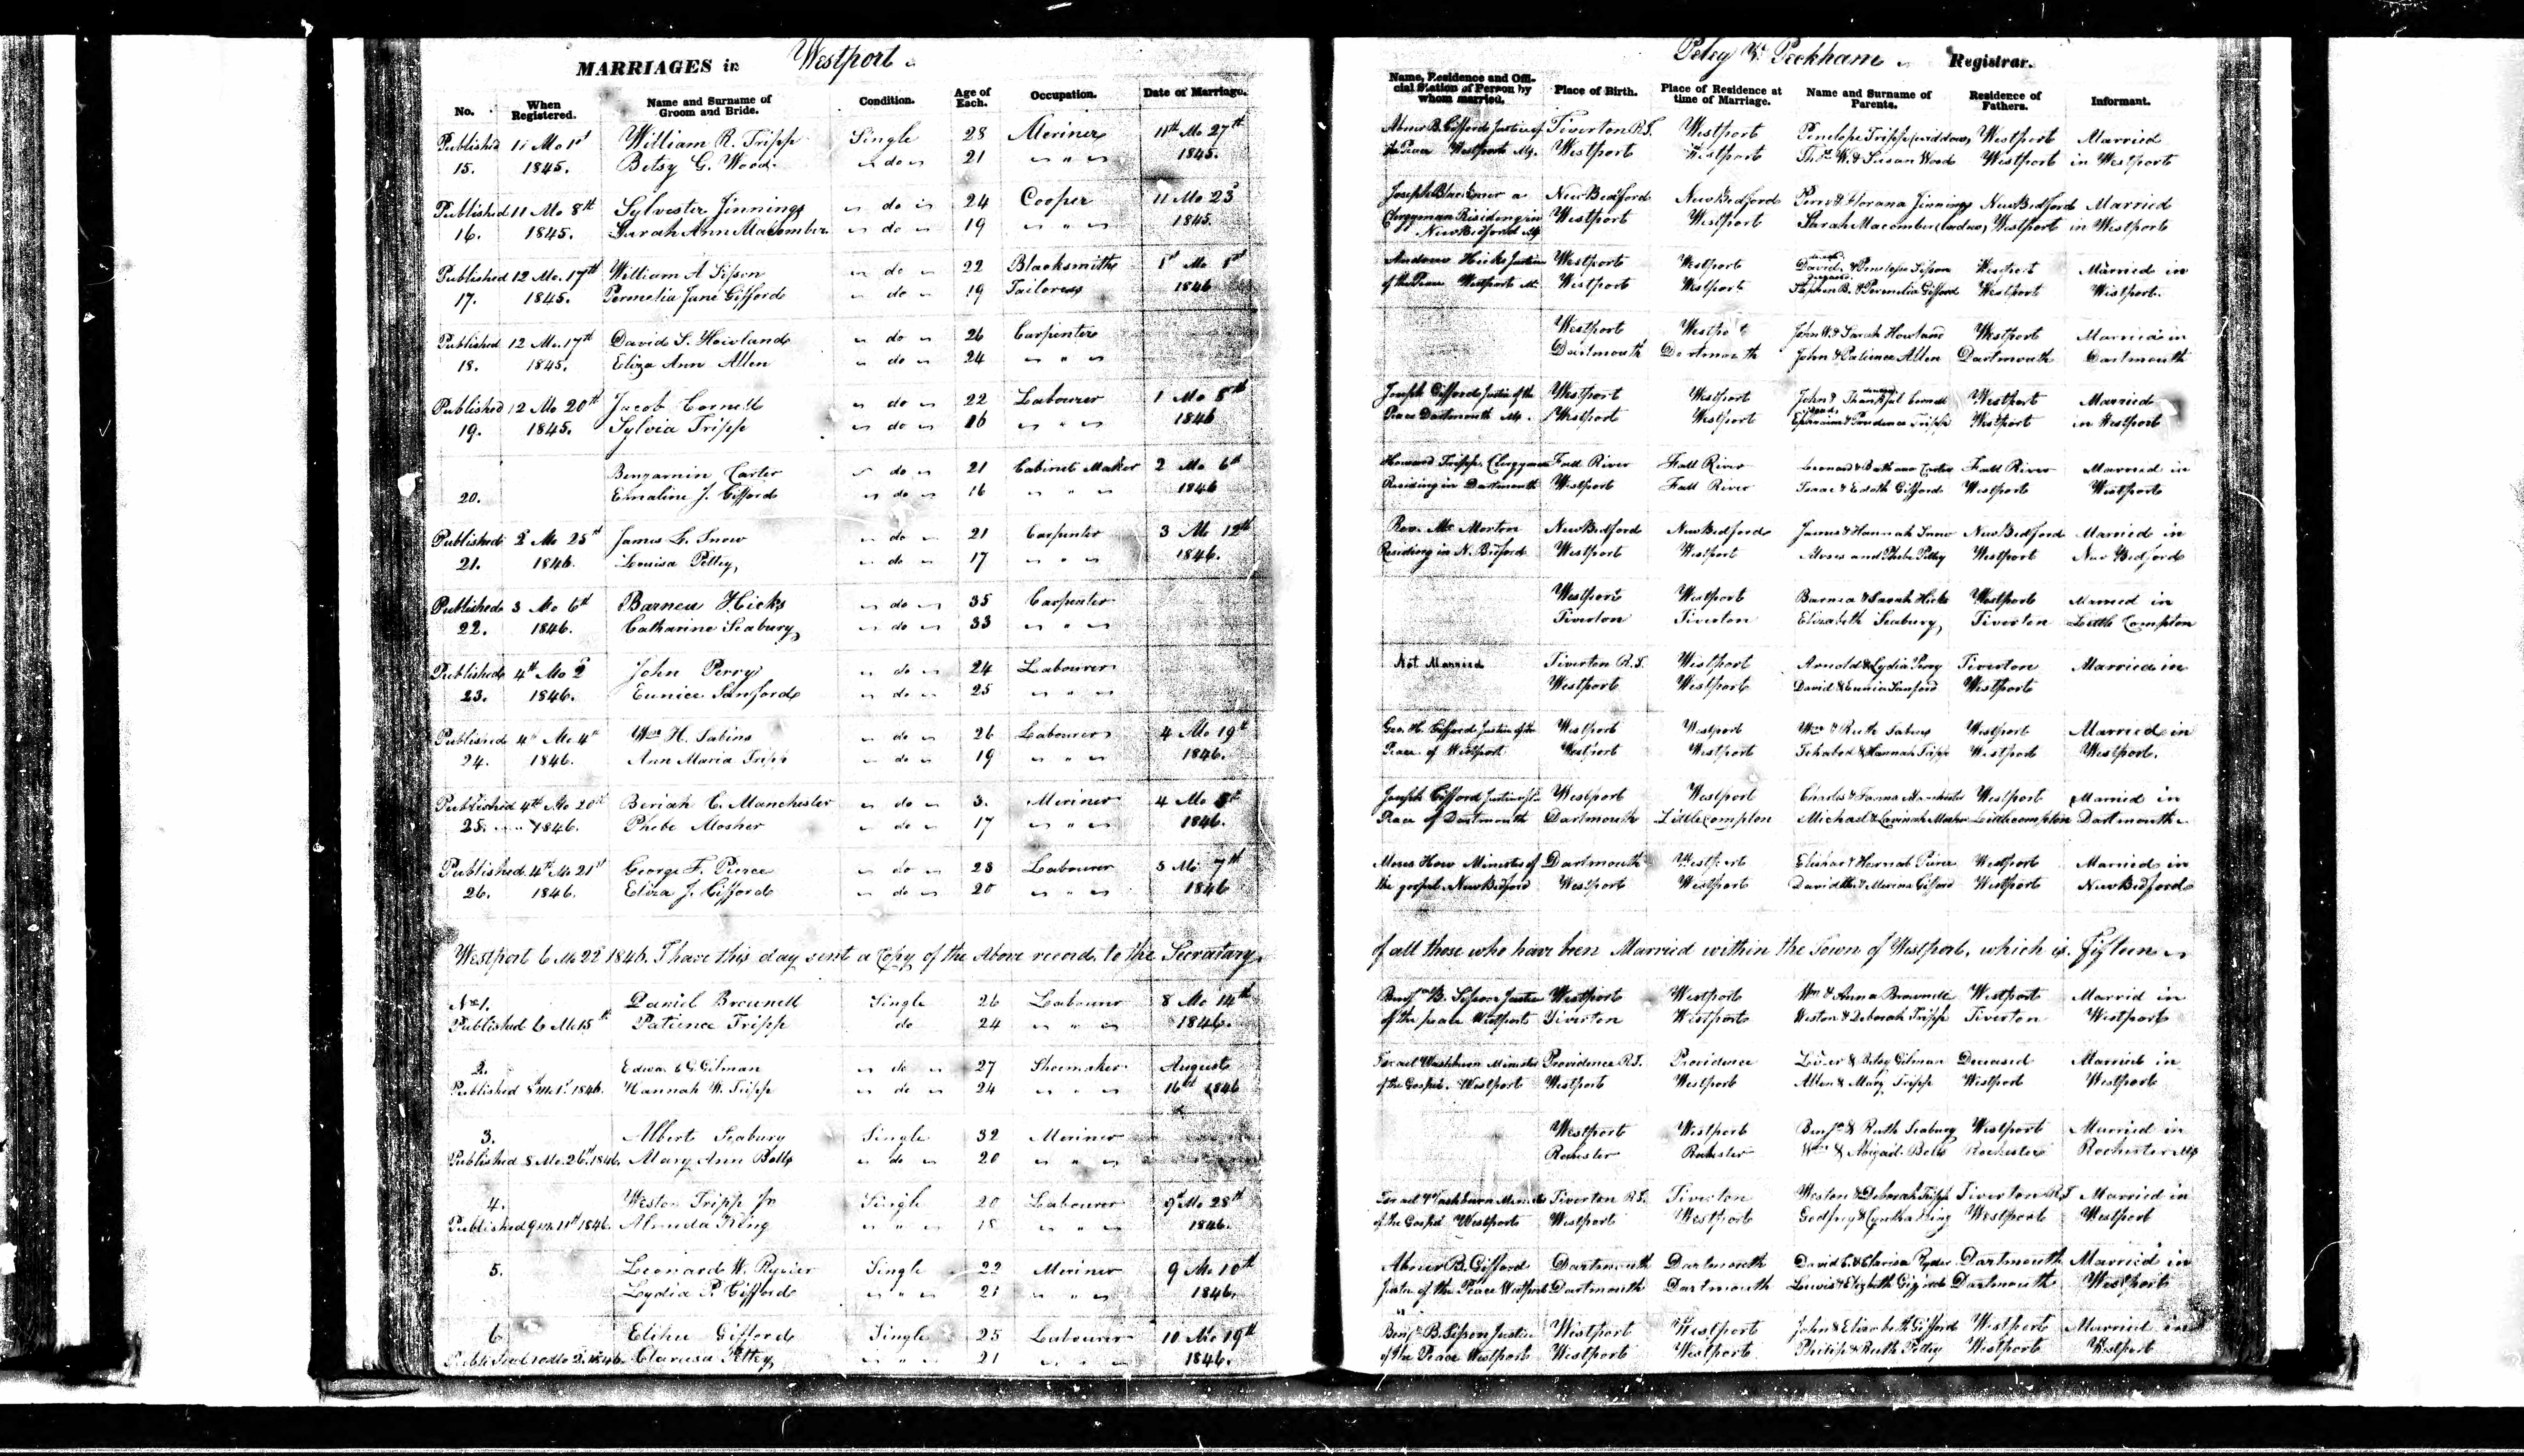 MARRIAGES in Westport
No. When Registered. Name and Surname of Groom and Bride. Condition. Age of Each. Occupation. Date of Marriage.
Published 11 Mo 1st William R. Tripp Single 28 Meriner 11th Mo 27th
15. 1845. Betsy G. Wood " do " 21 " " " 1845.
Published 11 Mo 8th Sylvester Jennings " do " 24 Cooper 11 Mo 23
16. 1845. Sarah Ann Macomber " do " 19 " " " 1845.
Published 12 Mo. 17th William A Sisson " do " 22 Blacksmith 1st Mo 1st
17. 1845. Permelia Jane Gifford " do " 19 Tailoress 1846
Published 12 Mo. 17th David S. Howland " do " 26 Carpenter
18. 1845. Eliza Ann Allen " do " 24 " " "
Published 12 Mo 20th Jacob Cornell " do " 22 Labourer 1 Mo 8th
19. 1845. Sylvia Tripp " do " 16 " " " 1846
Benjamin Carter " do " 21 Cabinet Maker 2 Mo 6th
20. Emaline J. Gifford " do " 16 " " " 1846
Published 2 Mo 25 James L. Snow " do " 21 Carpenter 3 Mo 12th
21. 1846. Louisa Pettey " do " 17 " " " 1846.
Published 3 Mo 6th Barnea Hicks " do " 35 Carpenter
22. 1846. Catharine Seabury " do " 33 " " "
Published 4th Mo 2 John Perry " do " 24 Labourer
23. 1846. Eunice Sanford " do " 25 " " "
Published 4th Mo 4th Wm H. Sabins " do " 26 Labourer 4 Mo 19th
24. 1846. Ann Maria Tripp " do " 19 " " " 1846.
Published 4th Mo 20th Beriah C. Manchester " do " 3. Meriner 4 Mo
25. 1846. Phebe Mosher " do " 17 " " " 1846.
Published 4th Mo 21st George F. Pierce " do " 23 Labourer 5 Mo 7th
26. 1846. Eliza J. Gifford " do " 20 " " " 1846
Westport 6 Mo 22 1846. I have this day sent a Copy of the Above record to the Secratary
No 1. Daniel Brownell Single 26 Labourer 8 Mo 14th
Published 6 Mo 15th Patience Tripp do 24 " " " 1846.
2. Edward G Gilman " do " 27 Shoemaker August
Published 8 Mo 1st 1846. Hannah W. Tripp " do " 24 " " " 16th 1846
3. Albert Seabury Single 32 Meriner
Published 8 Mo. 26th 1846. Mary Ann Bolls " do " 20 " " "
4. Weston Tripp Jr Single 20 Labourer 9 Mo 28th
Published 9 mo 11th 1846. Almeda King " " " 18 " " " 1846.
5. Leonard W. Ryder Single 22 Meriner 9 Mo 10th
Lydia P. Gifford " " " 21 " " " 1846.
6 Elihu Gifford Single 25 Labourer 10 Mo 19th
Published 10 Mo 2 1846. Clarissa Pettey " " " 21 " " " 1846.
Peleg W. Peckham Registrar.
Name, Residence and Official Station of Person by whom married. Place of Birth. Place of Residence at time of Marriage. Name and Surname of Parents. Residence of Fathers. Informant.
Abner B. Gifford Justice of Tiverton R.I. Westport Penelope Tripp (widdow) Westport Married
the Peace Westport Ms. Westport Westport Thos. W. & Susan Wood Westport in Westport
Joseph Blackmer a New Bedford New Bedford Perry & Jennings New Bedford Married
Clergyman Residing in Westport Westport Sarah Macomber (widow) Westport in Westport
New Bedford Ms
Andrew Hicks Justice Westport Westport David & Penelope Sisson Westport Married in
of the Peace Westport Ms. Westport Westport Stephen B. & Permelia Gifford Westport Westport.
Westport Westport John W. & Sarah Howland Westport Married in
Dartmouth Dartmouth John & Patience Allen Dartmouth Dartmouth
Joseph Gifford Justice of the Westport Westport John & Thankful Cornell Westport Married
Peace Dartmouth Ms. Westport Westport Ephraim & Prudence Tripp Westport in Westport
Howard Tripp Clergyman Fall River Fall River Leonard & Carter Fall River Married in
Residing in Dartmouth Westport Fall River Isaac & Edath Gifford Westport Westport
Rev. Mr Morton New Bedford New Bedford James & Hannah Snow New Bedford Married in
Residing in N. Bedford Westport Westport Moses and Phebe Pettey Westport New Bedford
Westport Westport Barnea & Sarah Hicks Westport Married in
Tiverton Tiverton Elizabeth Seabury Tiverton Little Compton
Not Married Tiverton R.I. Westport Arnold & Lydia Perry Tiverton Married in
Westport Westport David & Eunice Sanford Westport
Geo. H. Gifford Justice of the Westport Westport Wm & Ruth Sabins Westport Married in
Peace of Westport Westport Westport Ichabod & Hannah Tripp Westport Westport.
Joseph Gifford Justice of the Westport Westport Charles & Manchester Westport Married in
Peace of Dartmouth Dartmouth Little Compton Michael & Lovinah Mosher Little compton Dartmouth
Moses How Minister of Dartmouth Westport & Hannah Pierce Westport Married in
the gospel New Bedford Westport Westport David & Gifford Westport New Bedford
of all those who have been Married within the Town of Westport, which is fifteen
Benjn B. Sisson Justice Westport Westport Wm & Anna Brownell Westport Married in
of the peace Westport Tiverton Westport Weston & Deborah Tripp Tiverton Westport
Israel Washburn Minister Providence R.I. Providence & Betsy Gilman Deceased Married in
of the Gospel. Westport Westport Westport Allen & Mary Tripp Westport Westport
Westport Westport Benjn & Ruth Seabury Westport Married in
Rochester Rochester Wm & Abigail Bolls Rochester Rochester Ms
Israel Washburn Minister Tiverton R.I. Tiverton Weston & Deborah Tripp Tiverton R.I Married in
of the Gospel Westport Westport Westport Godfrey & Cynthia King Westport Westport
Abner B. Gifford Dartmouth Dartmouth David C. & Clarisa Ryder Dartmouth Married in
Justice of the Peace Westport Dartmouth Dartmouth Lewis & Elizabeth Gifford Dartmouth Westport
Benjn B. Sisson Justice Westport Westport John & Elizabeth Gifford Westport Married in
of the Peace Westport Westport Westport Philip & Ruth Pettey Westport Westport